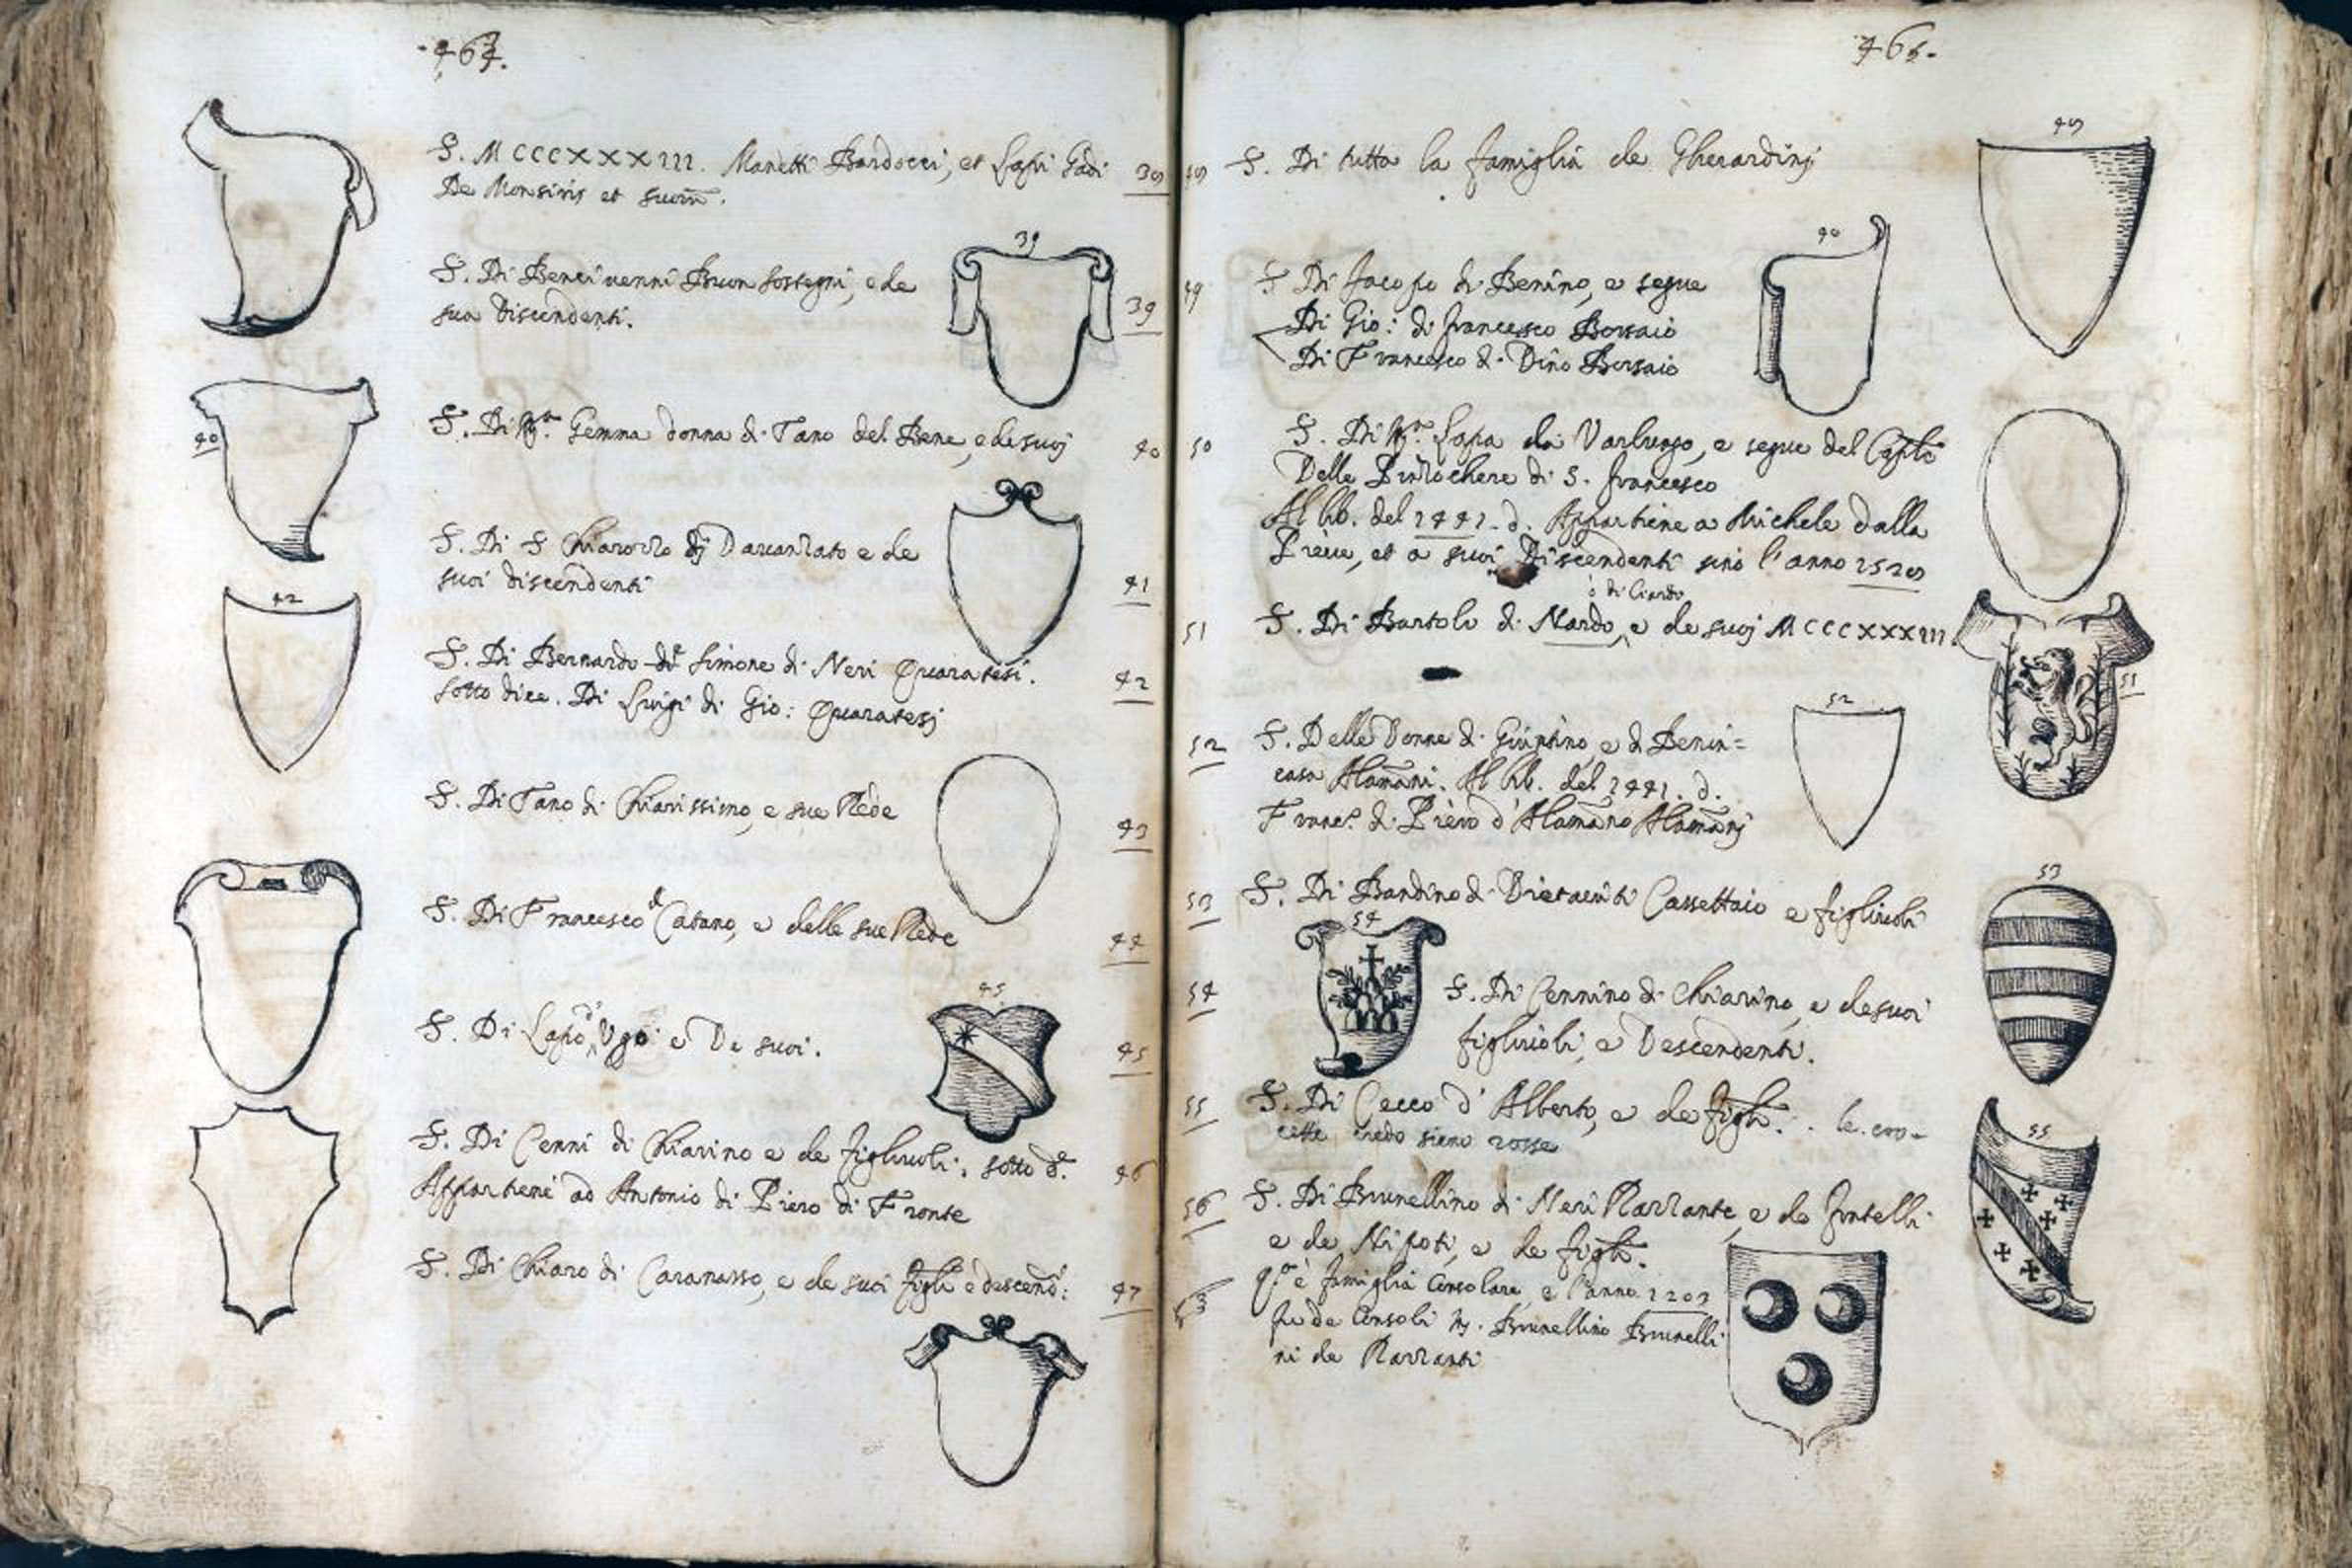 464.
S. MCCCXXXIII. Manetti Bardocci, et Lapi Gadi 38
De Monsiris et suorũ.
S. Di Bencivenni Buon Sostegni, e de 39
sua Discendenti.
39
S. Di Mª. Gemma donna di Tano del Bene, e de suoj 40
40
S. Di S Chiarozzo Davanzato e de
suoi discendenti 41
42
S. Di Bernardo di Simone di Neri Quaratesi. 42
sotto dice. Di Luigi di Gio: Quaratesj
S. Di Tano di Chiarissimo, e sue Rede 43
S. Di Francesco Catano, e delle sue Rede 44
S. Di Lapo d' Ugo e De suoi. 45
45
S. Di Cenni di Chiarino e de figliuoli, sotto 46
Appartiene ad Antonio di Piero di Fronte
S. Di Chiaro di Caranasso, e de suoi figli e descend: 47
465.
S. Di tutta la famiglia de Gherardinj
S Di Jacopo di Benino, e segue 49
Di Gio: di francesco Borsaio
Di Francesco di Dino Borsaio
50 S. Di Mª. Lapa da Varlungo, e segue del
Delle Pinzochere di S. francesco
Al lib. del 1441. d. Appartiene a Michele dalla
Pieve, et a suoi Discendenti sino l'anno
ò di Ciardo
51 S. Di Bartolo di Nardo, e de suoj MCCCXXXIII.
51
52
52 S. Delle Donne di e di Benin=
casa Alamãni. Al lib. del 1441. d.
Franc.º di Piero d'Alamãno Alamãnj
53
53 S. Di Bandino di Cassettaio e figliuoli
54
54 S. Di Cennino di Chiarino, e de suoi
figliuoli, e Descendenti.
55 S. Di Cecco d' Alberto, e de figli. le cro-
cette credo sieno rosse
55
56 S. Di Brunellino di Neri Razzante, e de fratelli
e de Nipoti, e de figli.
è famiglia Consolare, e l'anno 1203
fu de Consoli M. Brunellino Brunelli
ni de Razzanti